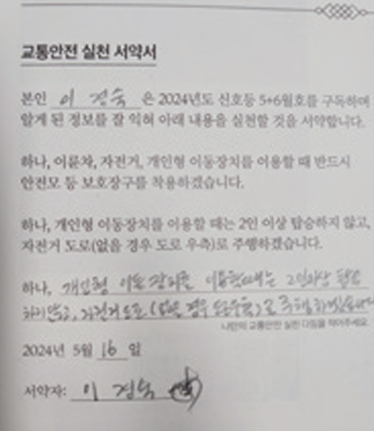 교통안전 실천 서약서
본인 이경숙 은 2024년도 신호등 5+6월호를 구독하며
알게 된 정보를 잘 익혀 아래 내용을 실천할 것을 서약합니다.
하나, 이륜차, 자전거, 개인형 이동장치를 이용할 때 반드시
안전모 등 보호장구를 착용하겠습니다.
하나, 개인형 이동장치를 이용할 때는 2인 이상 탑승하지 않고,
자전거 도로(없을 경우 도로 우측)로 주행하겠습니다.
하나, 개인형 이동장치를 이용할때는 2인이상 탑승
하지않고, 자전거도로 (없을 경우 도로우측)로 주행하겠습니다
나만의 교통안전 실천 다짐을 적어주세요.
2024년 5월 16 일
서약자: 이경숙